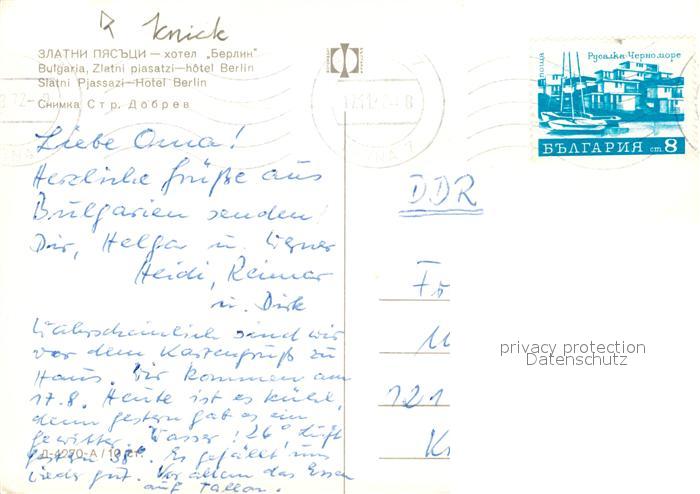 Knick
ЗЛАТНИ ПЯСЪЦИ — хотел „Берлин“
Bulgaria, Zlatni piasatzi—hôtel Berlin
Slatni Pjassazi—Hotel Berlin
Снимка Стр. Добрев
поща Русалка-Черноморе
БЪЛГАРИЯ ст. 8
Liebe Oma!
Herzliche Grüße aus
Bulgarien senden
Dir, Helga u. Werner
Heidi, Reimar
u. Dirk
Wahrscheinlich sind wir
vor dem Kartengruß zu
Haus. Wir kommen am
17.8. Heute ist es kühl,
denn gestern gab es ein
Gewitter. Wasser: 26°, Luft
gestern 38°. Es gefällt uns
wieder gut. Vor allem das Essen
auf
Д-4270-А / 10 ст.
DDR
Fr
121
privacy protection
Datenschutz